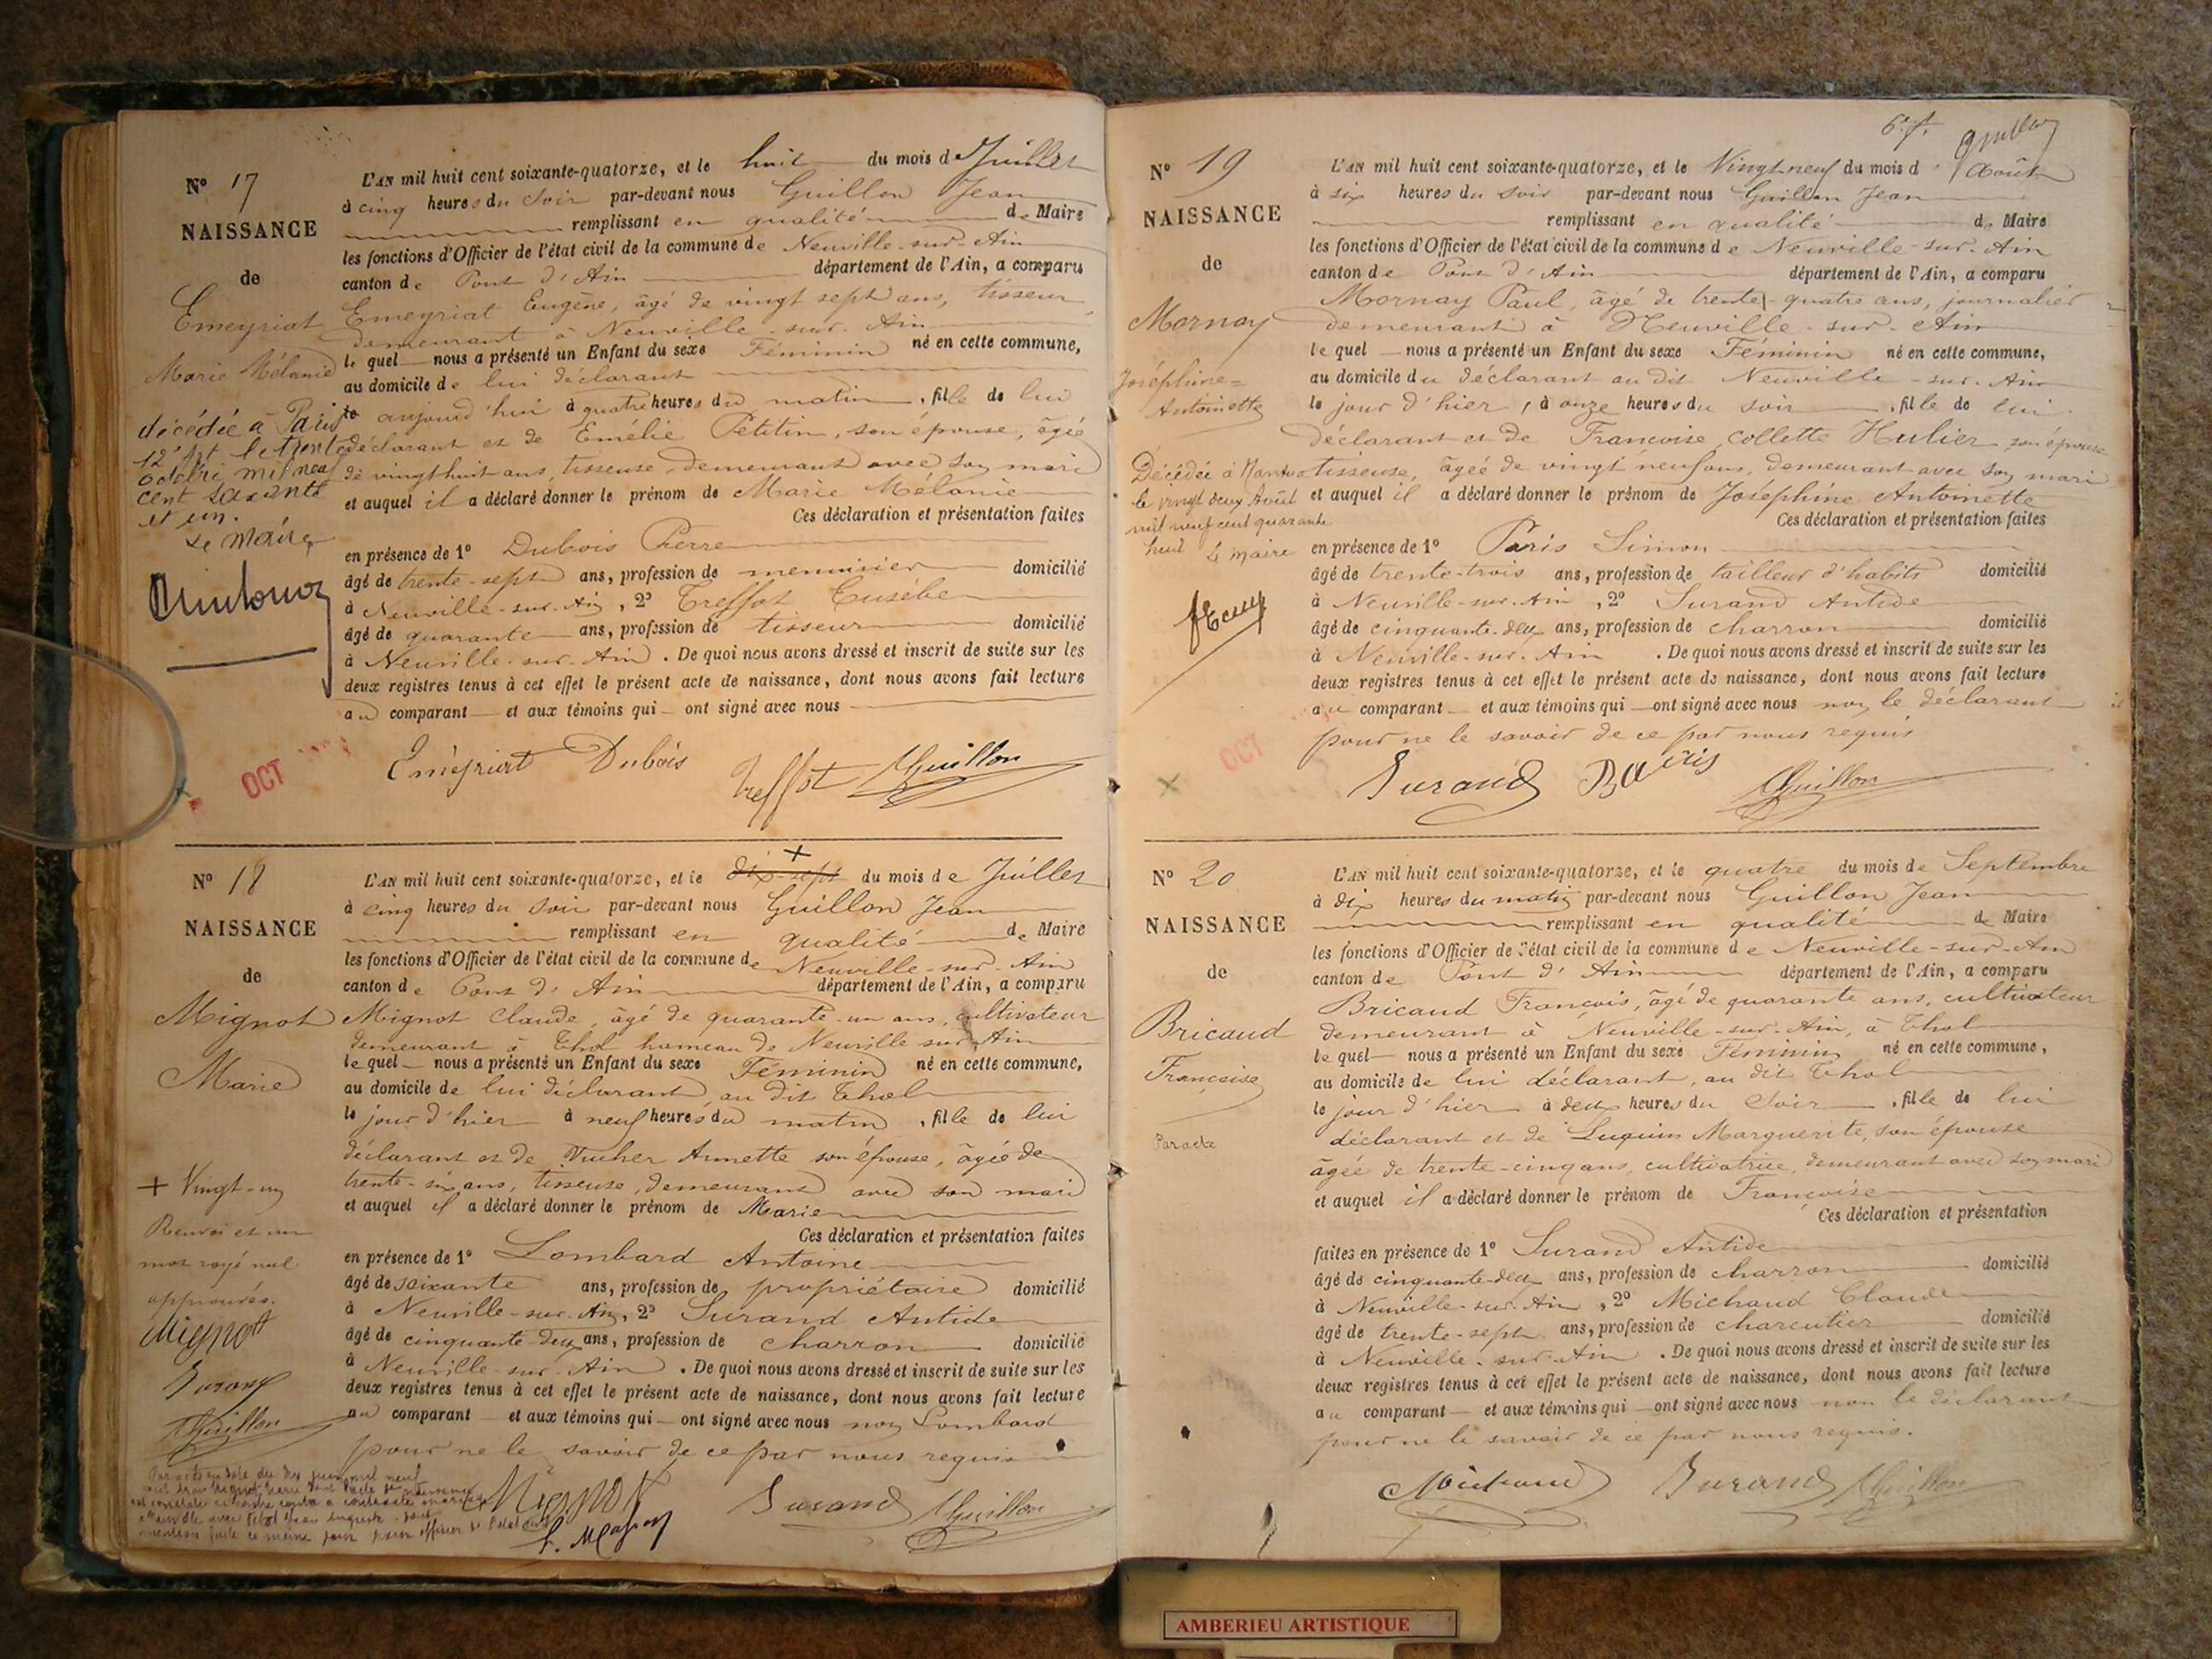 N° 17
NAISSANCE
de
Emeyriat
Marie Mélanie
décédée à Paris
12e Art le trente
octobre mil neuf
cent soixante
et un.
Le Maire
L'AN mil huit cent soixante-quatorze, et le huit du mois de Juillet
à cinq heures du soir par-devant nous Guillon Jean
remplissant en qualité de Maire
les fonctions d'Officier de l'état civil de la commune de Neuville-sur-Ain
canton de Pont d'Ain département de l'Ain, a comparu
Emeyriat Eugène, âgé de vingt sept ans, tisseur
demeurant à Neuville-sur-Ain
lequel nous a présenté un Enfant du sexe Féminin né en cette commune,
au domicile de lui déclarant
le aujourd'hui à quatre heures du matin, fille de lui
déclarant et de Emélie Petitin, son épouse, âgée
de vingt huit ans, tisseuse demeurant avec son mari
et auquel il a déclaré donner le prénom de Marie Mélanie
Ces déclaration et présentation faites
en présence de 1° Dubois Pierre
âgé de trente-sept ans, profession de menuisier domicilié
à Neuville-sur-Ain, 2° Treffot Eusébe
âgé de quarante ans, profession de tisseur domicilié
à Neuville-sur-Ain. De quoi nous avons dressé et inscrit de suite sur les
deux registres tenus à cet effet le présent acte de naissance, dont nous avons fait lecture
au comparant et aux témoins qui ont signé avec nous
Emeyriat Dubois Treffot Guillon
OCT
N° 18
NAISSANCE
de
Mignot
Marie
+ Vingt-un
Renvoi et un
mot rayé nul
approuvés.
Mignot
Durand
Guillon
L'AN mil huit cent soixante-quatorze, et le dix-sept + du mois de Juillet
à cinq heures du soir par-devant nous Guillon Jean
remplissant en qualité de Maire
les fonctions d'Officier de l'état civil de la commune de Neuville-sur-Ain
canton de Pont d'Ain département de l'Ain, a comparu
Mignot Claude, âgé de quarante-un ans, cultivateur
demeurant à Thol hameau de Neuville sur Ain
lequel nous a présenté un Enfant du sexe Féminin né en cette commune,
au domicile de lui déclarant au dit Thol
le jour d'hier à neuf heures du matin, fille de lui
déclarant et de Vucher Annette son épouse, âgée de
trente-six ans, tisseuse, demeurant avec son mari
et auquel il a déclaré donner le prénom de Marie
Ces déclaration et présentation faites
en présence de 1° Lombard Antoine
âgé de soixante ans, profession de propriétaire domicilié
à Neuville-sur-Ain, 2° Durand Antide
âgé de cinquante-deux ans, profession de charron domicilié
à Neuville-sur-Ain. De quoi nous avons dressé et inscrit de suite sur les
deux registres tenus à cet effet le présent acte de naissance, dont nous avons fait lecture
au comparant et aux témoins qui ont signé avec nous non Lombard
pour ne le savoir de ce par nous requis
Mignot Durand Guillon
6e f. Guillon
N° 19
NAISSANCE
de
Mornay
Joséphine=
Antoinette
Décédée à Nantua
le vingt deux Août
mil neuf cent quarante
huit Le Maire
L'AN mil huit cent soixante-quatorze, et le Vingt neuf du mois d'Août
à six heures du soir par-devant nous Guillon Jean
remplissant en qualité de Maire
les fonctions d'Officier de l'état civil de la commune de Neuville-sur-Ain
canton de Pont d'Ain département de l'Ain, a comparu
Mornay Paul, âgé de trente-quatre ans, journalier
demeurant à Neuville-sur-Ain
lequel nous a présenté un Enfant du sexe Féminin né en cette commune,
au domicile du déclarant au dit Neuville-sur-Ain
le jour d'hier, à onze heures du soir, fille de lui
déclarant et de Françoise Collette Hulier son épouse
tisseuse, âgée de vingt neuf ans, demeurant avec son mari
et auquel il a déclaré donner le prénom de Joséphine Antoinette
Ces déclaration et présentation faites
en présence de 1° Paris Simon
âgé de trente-trois ans, profession de tailleur d'habits domicilié
à Neuville-sur-Ain, 2° Durand Antide
âgé de cinquante-deux ans, profession de charron domicilié
à Neuville-sur-Ain. De quoi nous avons dressé et inscrit de suite sur les
deux registres tenus à cet effet le présent acte de naissance, dont nous avons fait lecture
au comparant et aux témoins qui ont signé avec nous non le déclarant
pour ne le savoir de ce par nous requis
Durand Paris Guillon
OCT
N° 20
NAISSANCE
de
Bricaud
Françoise
Par acte
L'AN mil huit cent soixante-quatorze, et le quatre du mois de Septembre
à dix heures du matin par-devant nous Guillon Jean
remplissant en qualité de Maire
les fonctions d'Officier de l'état civil de la commune de Neuville-sur-Ain
canton de Pont d'Ain département de l'Ain, a comparu
Bricaud François, âgé de quarante ans, cultivateur
demeurant à Neuville-sur-Ain, à Thol
lequel nous a présenté un Enfant du sexe Féminin né en cette commune,
au domicile de lui déclarant, au dit Thol
le jour d'hier à deux heures du soir, fille de lui
déclarant et de Luquin Marguerite, son épouse
âgée de trente-cinq ans, cultivatrice, demeurant avec son mari
et auquel il a déclaré donner le prénom de Françoise
Ces déclaration et présentation
faites en présence de 1° Durand Antide
âgé de cinquante-deux ans, profession de charron domicilié
à Neuville-sur-Ain, 2° Michaud Claude
âgé de trente-sept ans, profession de charcutier domicilié
à Neuville-sur-Ain. De quoi nous avons dressé et inscrit de suite sur les
deux registres tenus à cet effet le présent acte de naissance, dont nous avons fait lecture
au comparant et aux témoins qui ont signé avec nous non le déclarant
pour ne le savoir de ce par nous requis.
Michaud Durand Guillon
AMBERIEU ARTISTIQUE